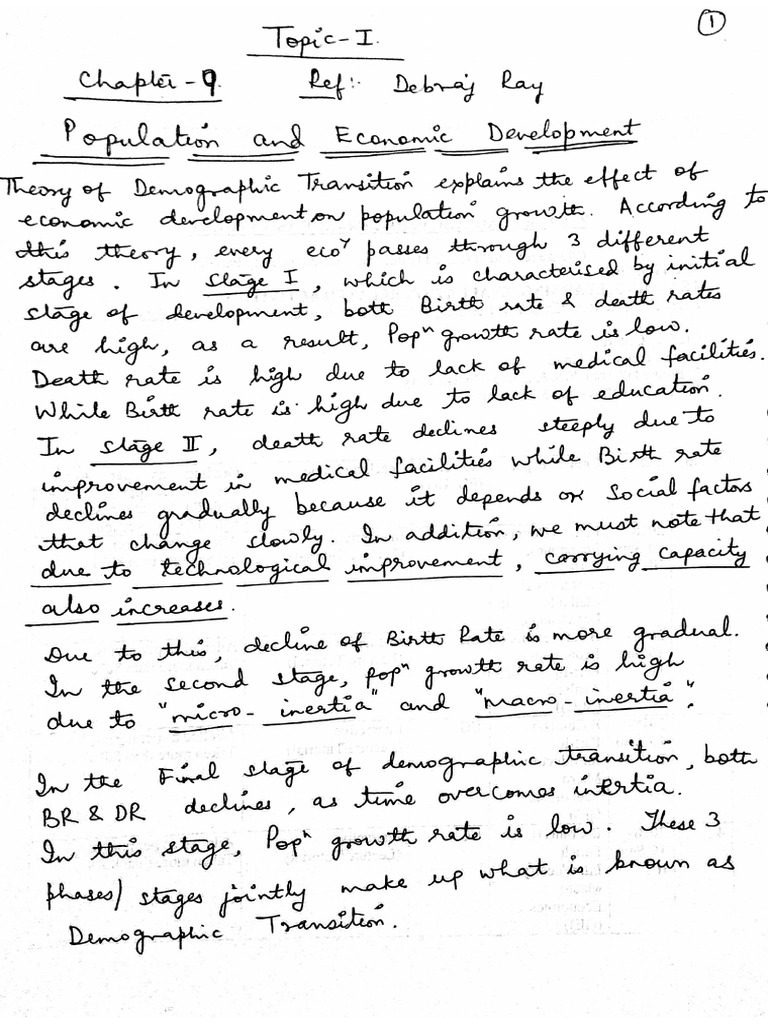 1
Topic-I.
Chapter-9. Ref:- Debraj Ray
Population and Economic Development
Theory of Demographic Transition explains the effect of
economic development on population growth. According to
this theory, every ecoy passes through 3 different
stages. In Stage I, which is characterised by initial
stage of development, both Birth rate & death rates
are high, as a result, Popn growth rate is low.
Death rate is high due to lack of medical facilities.
While Birth rate is high due to lack of education.
In Stage II, death rate declines steeply due to
improvement in medical facilities while Birth rate
declines gradually because it depends on Social factors
that change slowly. In addition, we must note that
due to technological improvement, carrying capacity
also increases.
Due to this, decline of Birth Rate is more gradual.
In the second stage, popn growth rate is high
due to "micro-inertia" and "macro-inertia".
In the Final stage of demographic transition, both
BR & DR declines, as time overcomes intertia.
In this stage, Popn growth rate is low. These 3
phases/ stages jointly make up what is known as
Demographic Transition.